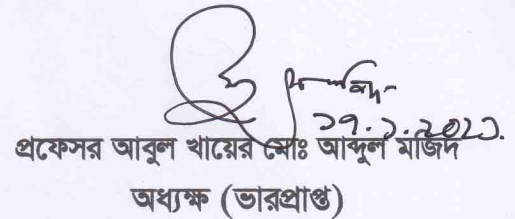 প্রফেসর আবুল খায়ের মোঃ আব্দুল মজিদ
অধ্যক্ষ (ভারপ্রাপ্ত)